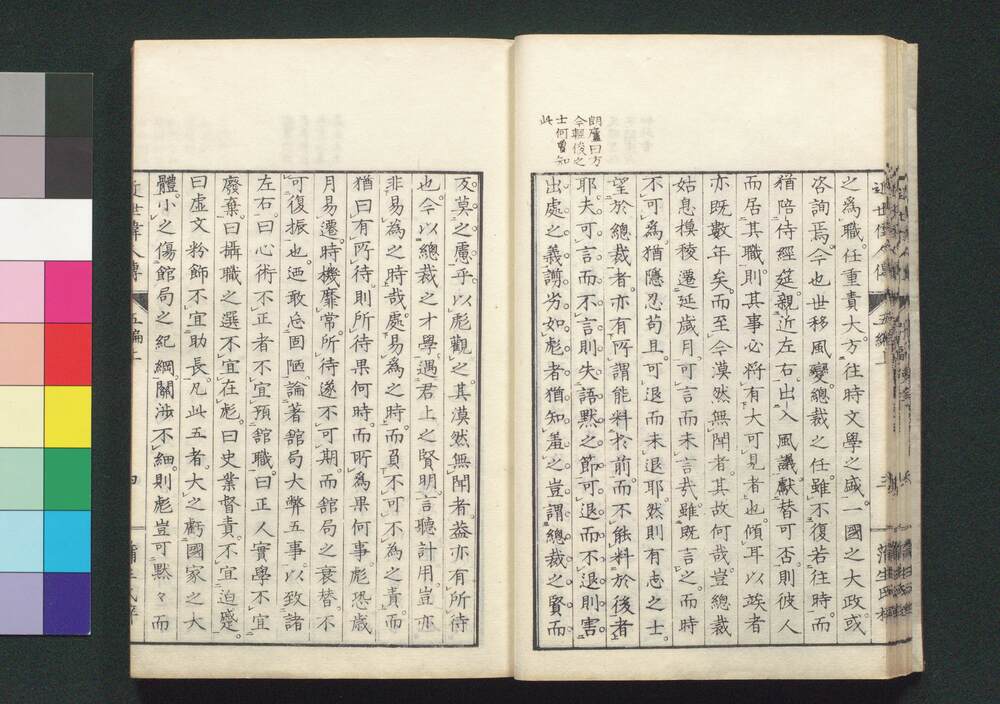 朗廬曰方
今輕俊之
士何曾知
此
之爲職。任重責大。方往時文學之盛。一國之大政。或
咨詢焉。今也世移風變。總裁之任。雖不復若往時。而
猶陪侍經筵。親近左右。出入風議。獻替可否。則彼人
而居其職。則其事必將有大可見者也。傾耳以竢者
亦既數年矣。而至今漠然無聞者。其故何哉。豈總裁
姑息摸稜。遷延歲月。可言而未言哉。雖既言之。而時
不可。為猶隱忍苟且。可退而未退耶。然則有志之士。
望於總裁者。亦有所謂能料於前。而不能料於後者
耶。夫可言而不言。則失語默之節。可退而不退。則害
出處之義。謭劣如彪者。猶知羞之。豈謂總裁之賢。而
反莫之慮乎。以彪觀之。其漠然無聞者。葢亦有所待
也。今以總裁之才學。遇君上之賢明。言聽計用。豈亦
非易為之時哉。處易為之時。而負不可不為之責。而
猶曰有所待。則所待果何時。而所為果何事。彪恐歲
月易遷。時機靡常。所待遂不可期。而館局之衰替。不
可復振也。迺敢忘固陋。論著館局大弊五事。以致諸
左右。曰心術不正者。不宜預舘職。曰正人實學不宜
廢棄。曰攝職之選不宜在彪。曰史業督責。不宜迫蹙。
曰虛文粉飾。不宜助長。凡此五者。大之虧國家之大
體。小之傷館局之紀綱。關涉不細。則彪豈可默々而
近世偉人傳
五編上
四
蒲生氏梓